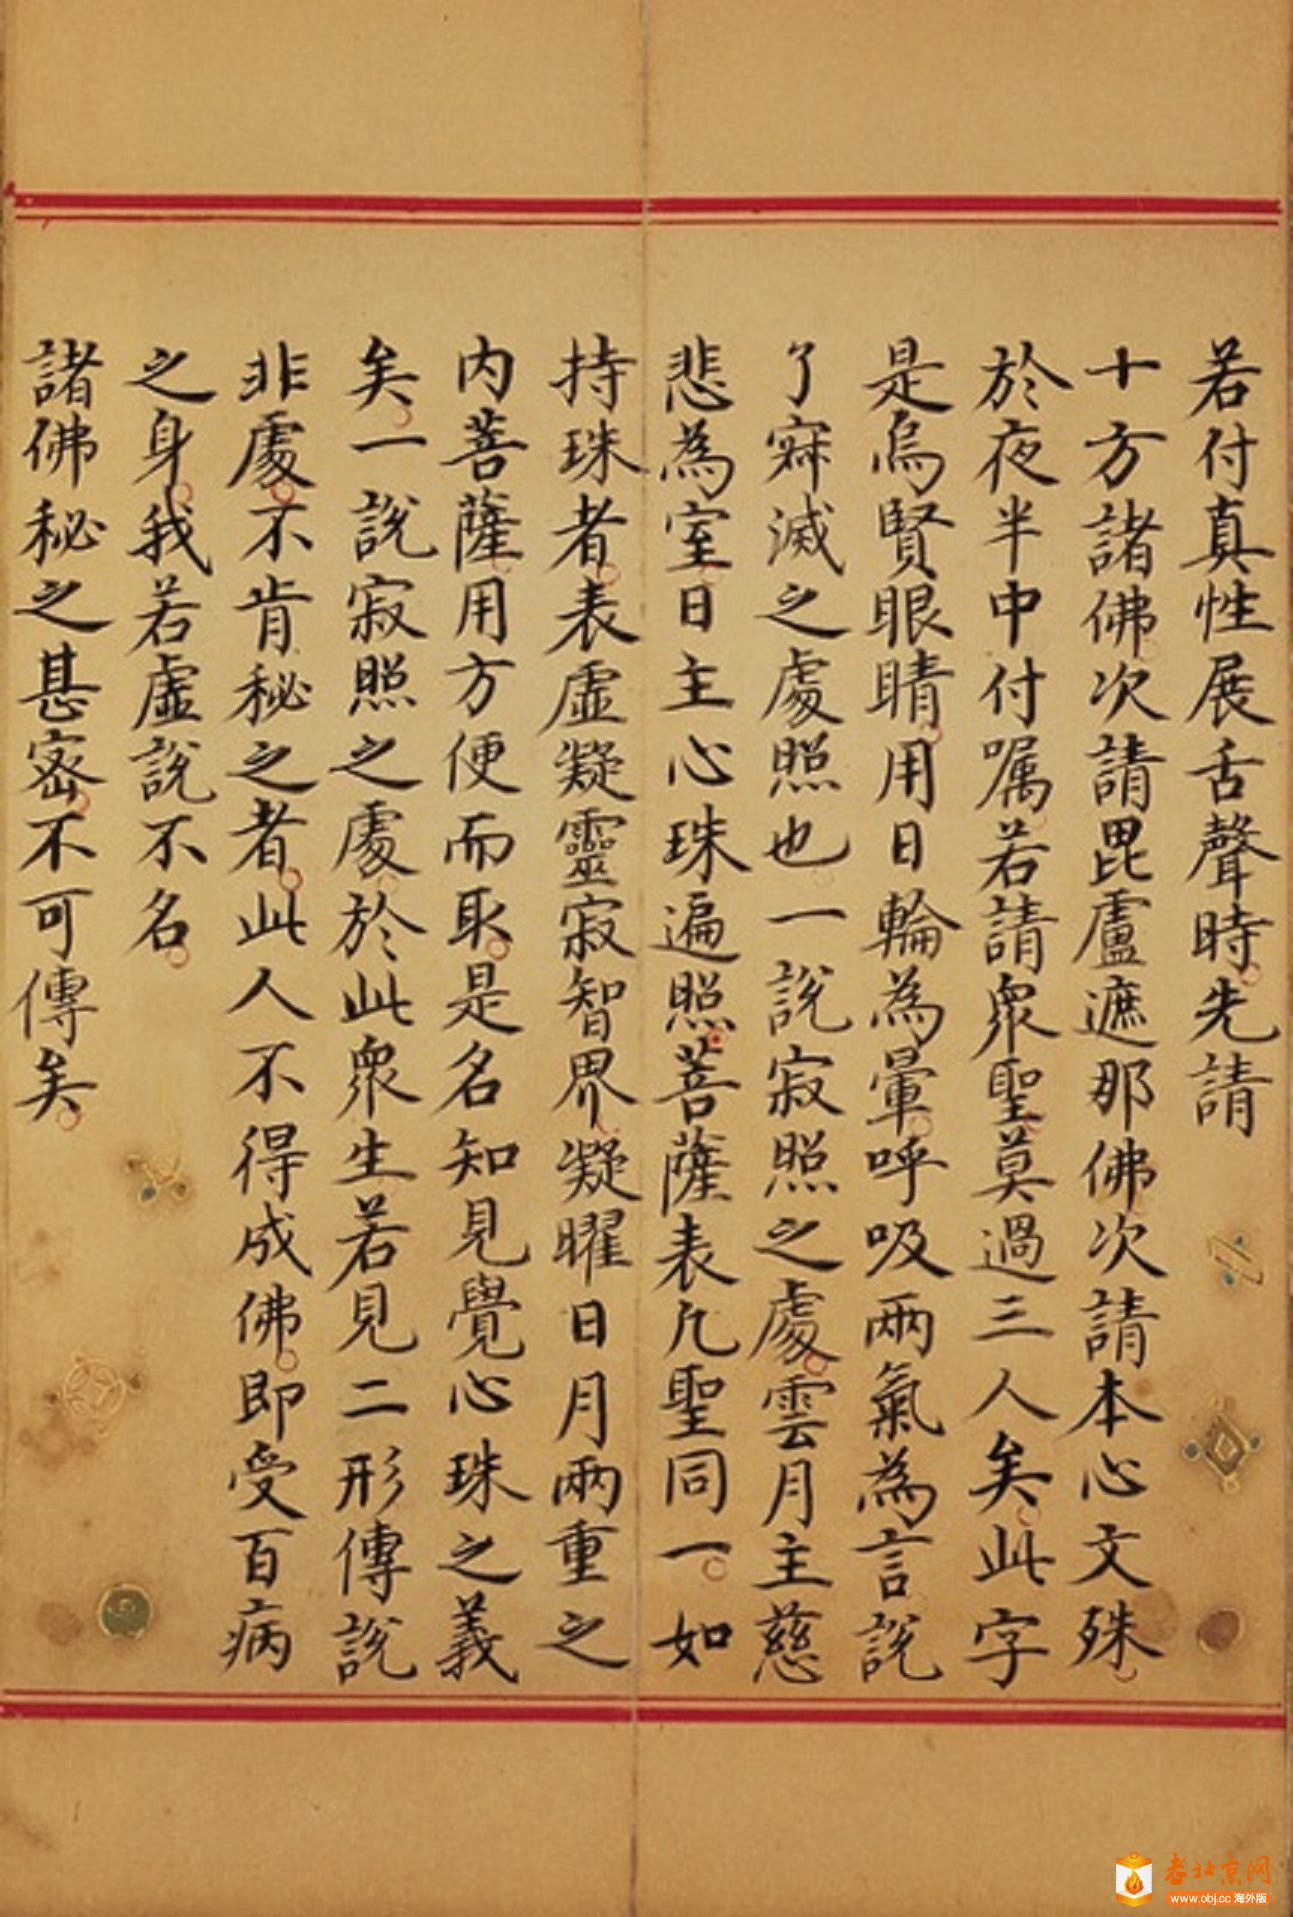 若付真性展舌聲時先請
十方諸佛次請毘盧遮那佛次請本心文殊
於夜半中付嘱若請衆聖莫過三人矣此字
是烏賢眼睛用日輪為暈呼吸兩氣為言説
了寂滅之處照也一説寂照之處雲月主慈
悲為室日主心珠遍照菩薩表凡聖同一如
持珠者表虛凝靈寂智界凝曜日月兩重之
内菩薩用方便而取是名知見覺心珠之義
矣一説寂照之處於此衆生若見二形傳説
非處不肯秘之者此人不得成佛即受百病
之身我若虛説不名
諸佛秘之甚密不可傳矣
老北京网
www.obj.cc 海外版